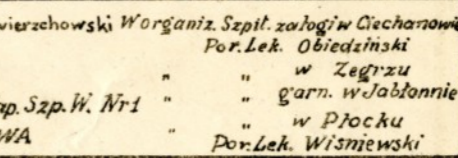 wierzchowski W organiz. Szpit. załogi w Ciechanowie
Por. Lek. Obiedziński
" " w Zegrzu
ap. Szp. W. Nr 1 " " garn. w Jabłonnie
WA " " w Płocku
Por. Lek. Wiśniewski